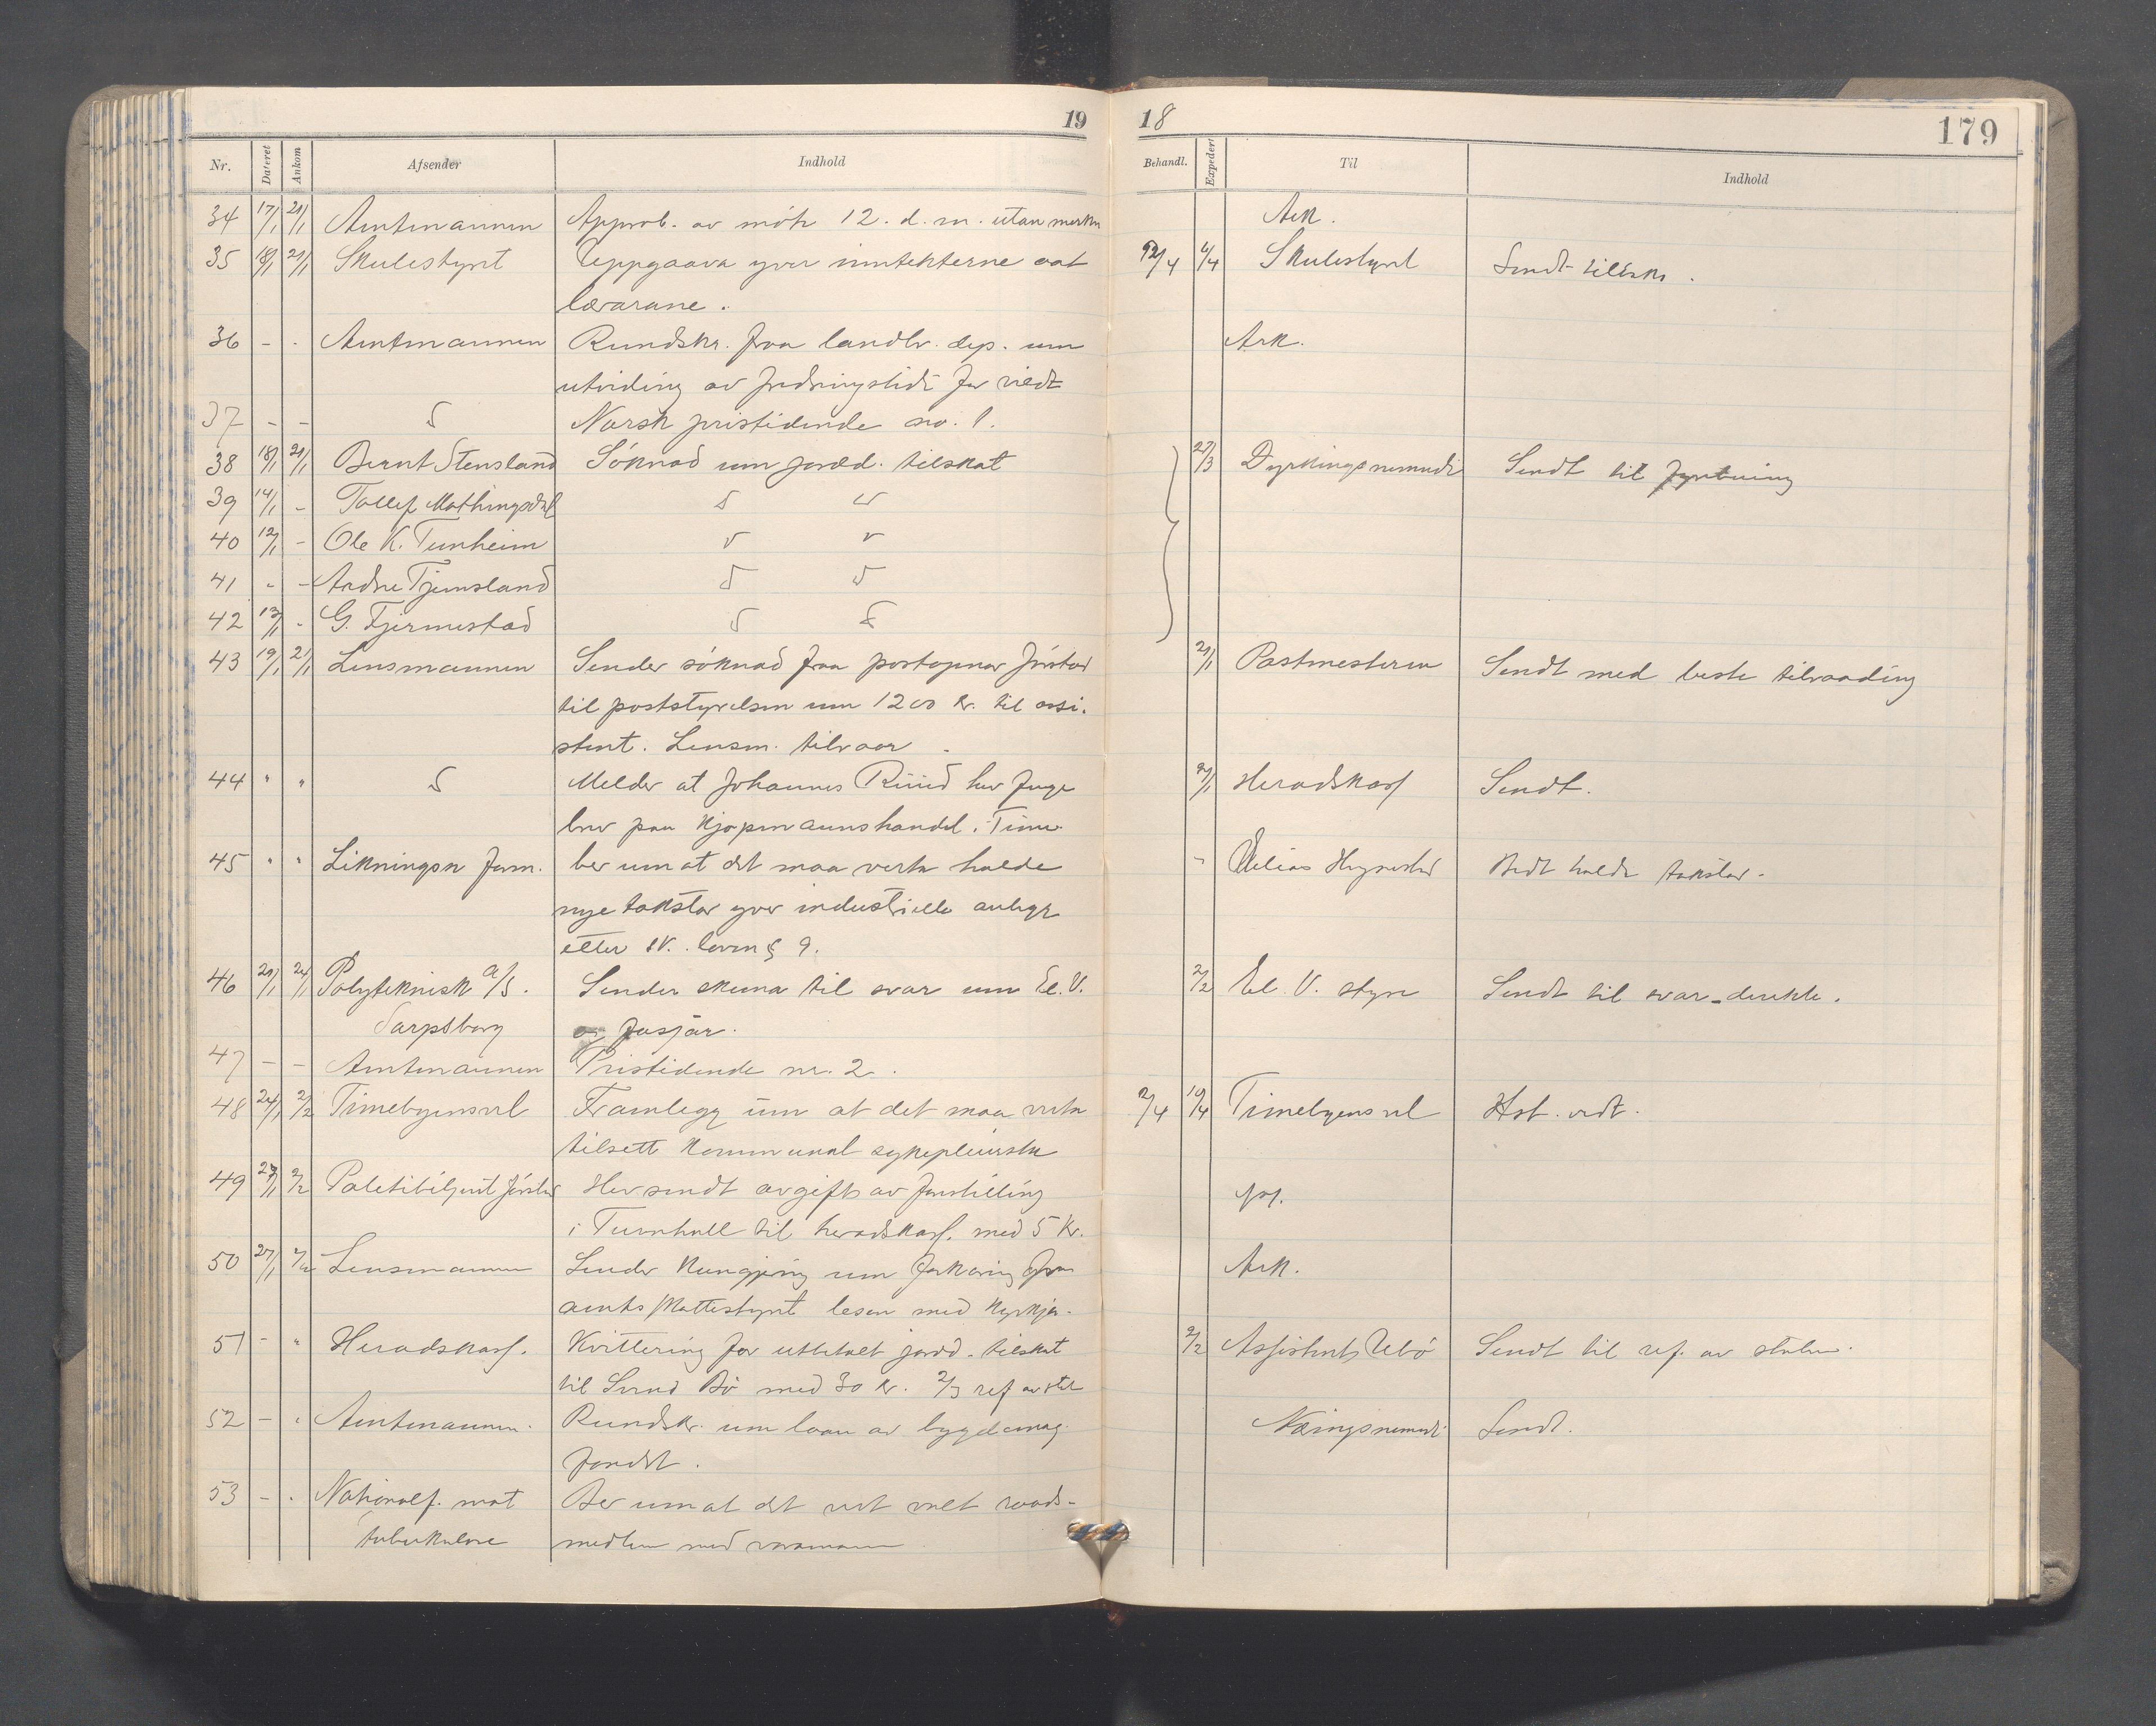 19 18 179
Nr. Dateret Ankom Afsender Indhold Behandl. Expedert Til Indhold
34 17/1 21/1 Amtmannen Approb. av möte 12. d. m. utan merkn Ark.
35 18/1 21/1 Skulestyret Uppgaava yver inntekterne aat 12/4 4/4 Skulestyret Sendt
lærarane.
36 - - Amtmannen Rundskr. fraa landbr. dep. um Ark.
utviding av fredningstidi for vildt
37 - - Norsk pristidende no. 1.
38 18/1 21/1 Bernt Stensland Söknad um jordd. tilskot 27/3 Dyrkingsnemndi Sendt til
39 14/1 - Tollef Mathingsdal
40 12/1 - Ole K. Tunheim
41 - - Ardne Tjemsland
42 13/1 - G. Fjermestad
43 19/1 21/1 Lensmannen Sender söknad fraa postopnar Jörstad 21/1 Postmesteren Sendt med beste tilraading
til poststyrelsen um 1200 kr. til assi-
stent. Lensm. tilraar.
44 " " Melder at Johannes Ruud hev fenge 21/1 Heradskass Sendt.
brev paa kjøpmannshandel i Time.
45 " " Likningsn form. ber um at det maa verta halde - Elias Bedt halde takstar.
nye takstar yver industrielle anlegg
etter loven § 9.
46 21/1 24/1 Polyteknisk A/S. Sender skema til svar um El. V. 2/2 El. V. styre Sendt til svar direkte.
Sarpsborg
47 - - Amtmannen Pristidende nr. 2.
48 24/1 2/2 Timebyens vel Framlegg um at det maa verta 2/4 10/4 Timebyens vel Hst. vedt.
tilsett kommunal sykepleierske
49 27/1 2/2 Hev sendt avgift av forestilling
i Turnhall til heradskass. med 5 kr.
50 27/1 Lensmannen Sender kungjering um forkøring fraa Ark.
amts mattestyret lesen med kyrkja.
51 - " Heradskass. Kvittering for uttetalt jordd. tilskot 2/2 Assistent Uebö Sendt til ref. av staten.
til Svend Bö med 30 kr. 2/3 ref av stat
52 - " Amtmannen. Rundskr. um loan av bygdemag. Næringsnemndi Sendt.
fondet.
53 - - Nationalf. mot Ber um at det vert valt raads-
tuberkulose medlem med varamann